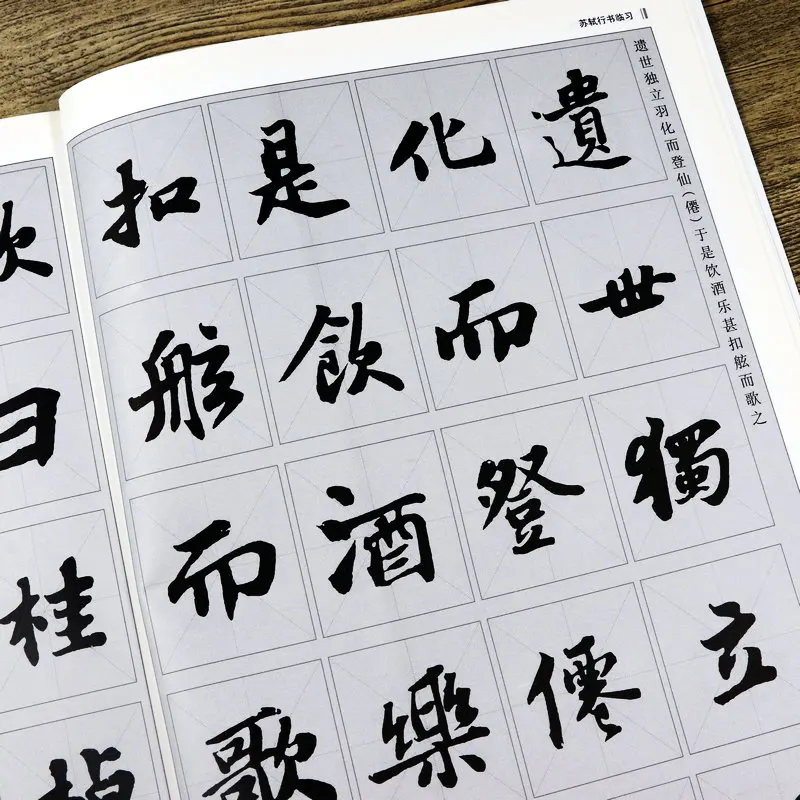 苏轼行书临习
遗世独立羽化而登仙（僊）于是饮酒乐甚扣舷而歌之
遺世獨立
化而登僊
是飲酒樂
扣舷而歌
曰
桂